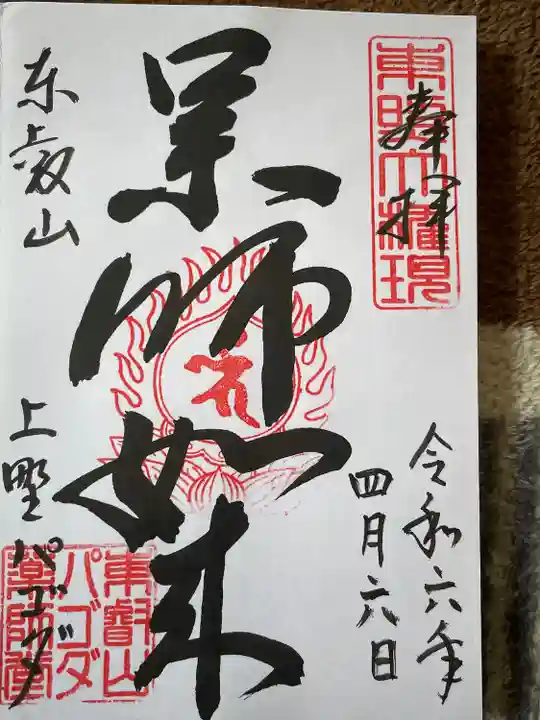 奉拝
東照大権現
令和六年
四月六日
薬師如来
東叡山
上野パゴダ
東叡山
パゴダ
薬師堂